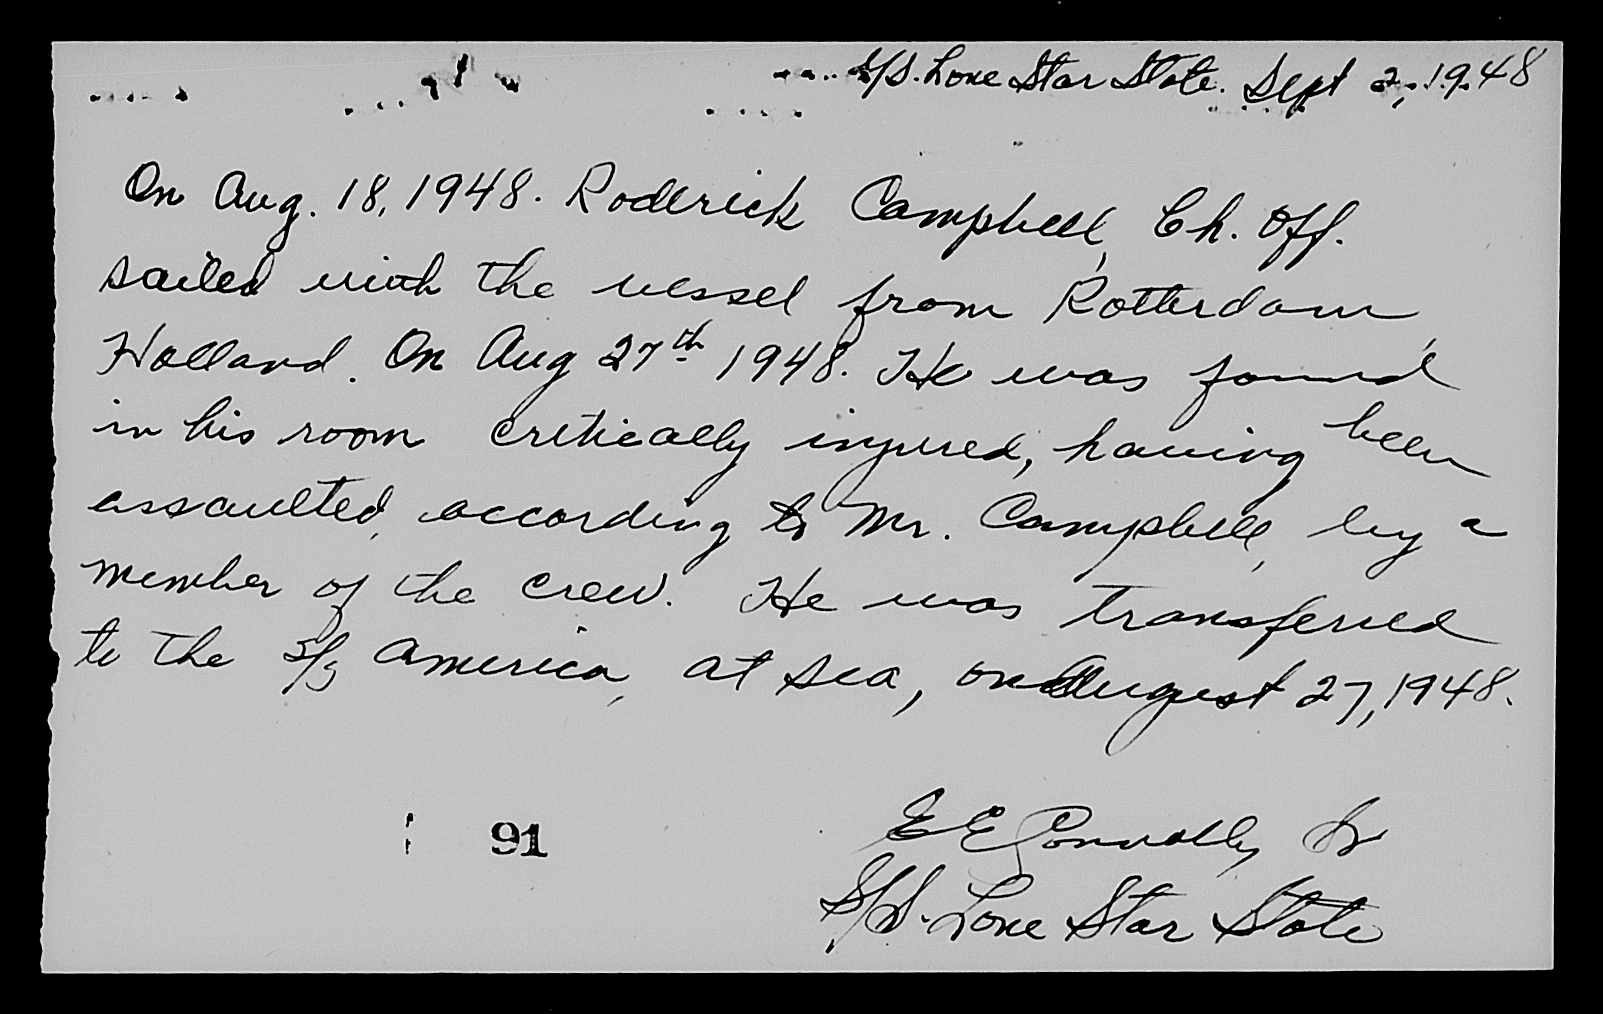 S/S. Lone Star State. Sept 2, 1948
On Aug. 18, 1948. Roderick Campbell, Ch. Off.
sailed with the vessel from Rotterdam,
Holland. On Aug 27th 1948. He was found
in his room critically injured, having been
assaulted, according to Mr. Campbell, by a
member of the crew. He was transferred
to the S/S America, at sea, on August 27, 1948.
E E Connolly Jr
91
S/S. Lone Star State